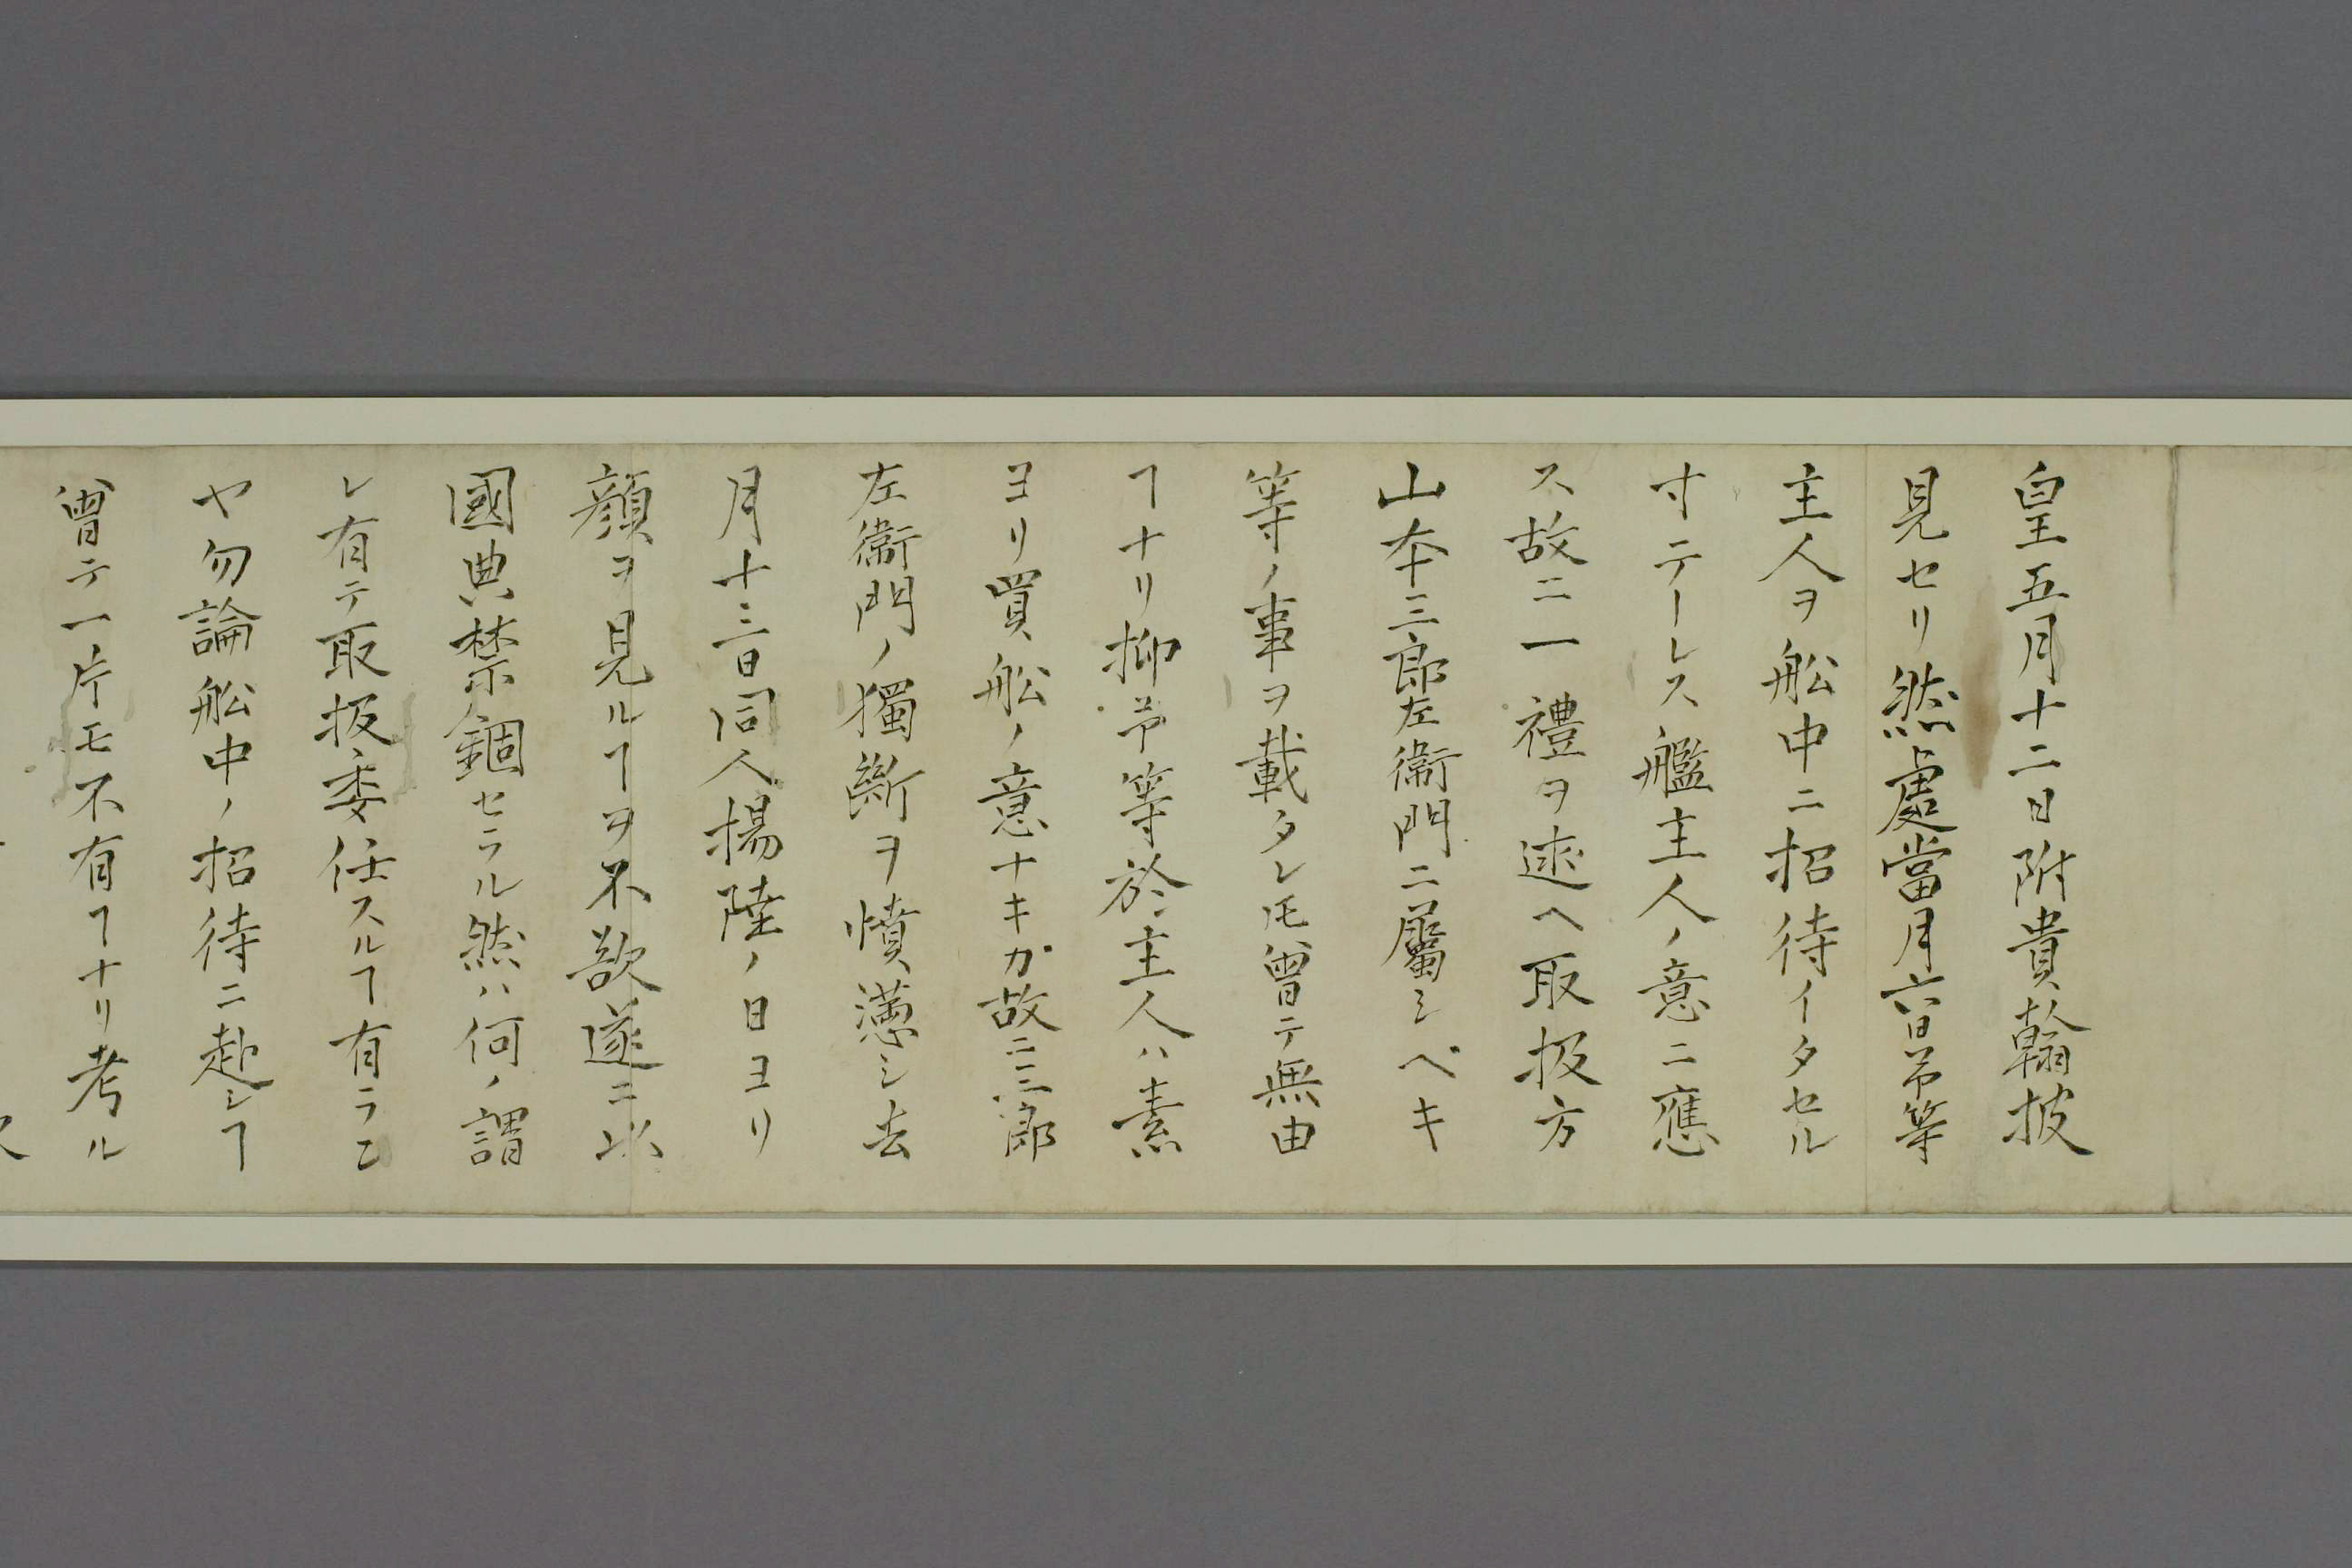 皇五月十二日附貴翰披
見セリ然處當月六日予等
主人ヲ舩中ニ招待イタセル
寸テーレス艦主人ノ意ニ應
ス故ニ一禮ヲ述ヘ取扱方
山本三郎左衛門ニ屬シベキ
等ノ事ヲ載タレ𪜈曽テ無由
ヿナリ抑予等於主人ハ素
ヨリ買舩ノ意ナキガ故ニ三郎
左衛門ノ獨斷ヲ憤懣シ去
月十三日同人揚陸ノ日ヨリ
顔ヲ見ルヿヲ不欲遂ニ以
國典禁錮セラル然ハ何ノ謂
レ有テ取扱委任スルヿ有ラン
ヤ勿論舩中ノ招待ニ赴シヿ
曽テ一片モ不有ヿナリ考ル